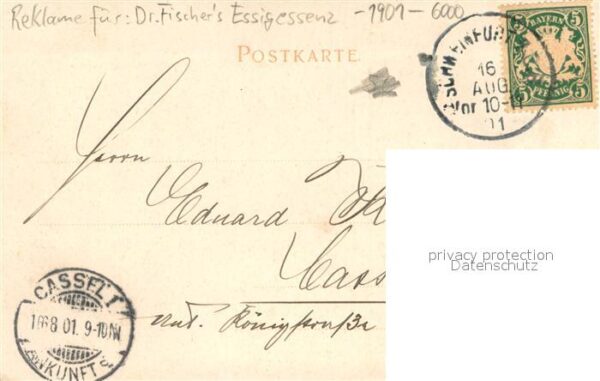 Reklame für: Dr. Fischer's Essigessenz -1901- 6000
POSTKARTE.
SCHWEINFURT
16
AUG
Vor 10-11
01
BAYERN
5 5
PFENNIG
5 5
Herrn
Eduard
Cass
privacy protection
Datenschutz
Königstraße
CASSEL 1
16 8 01. 9-10 N
ANKUNFT